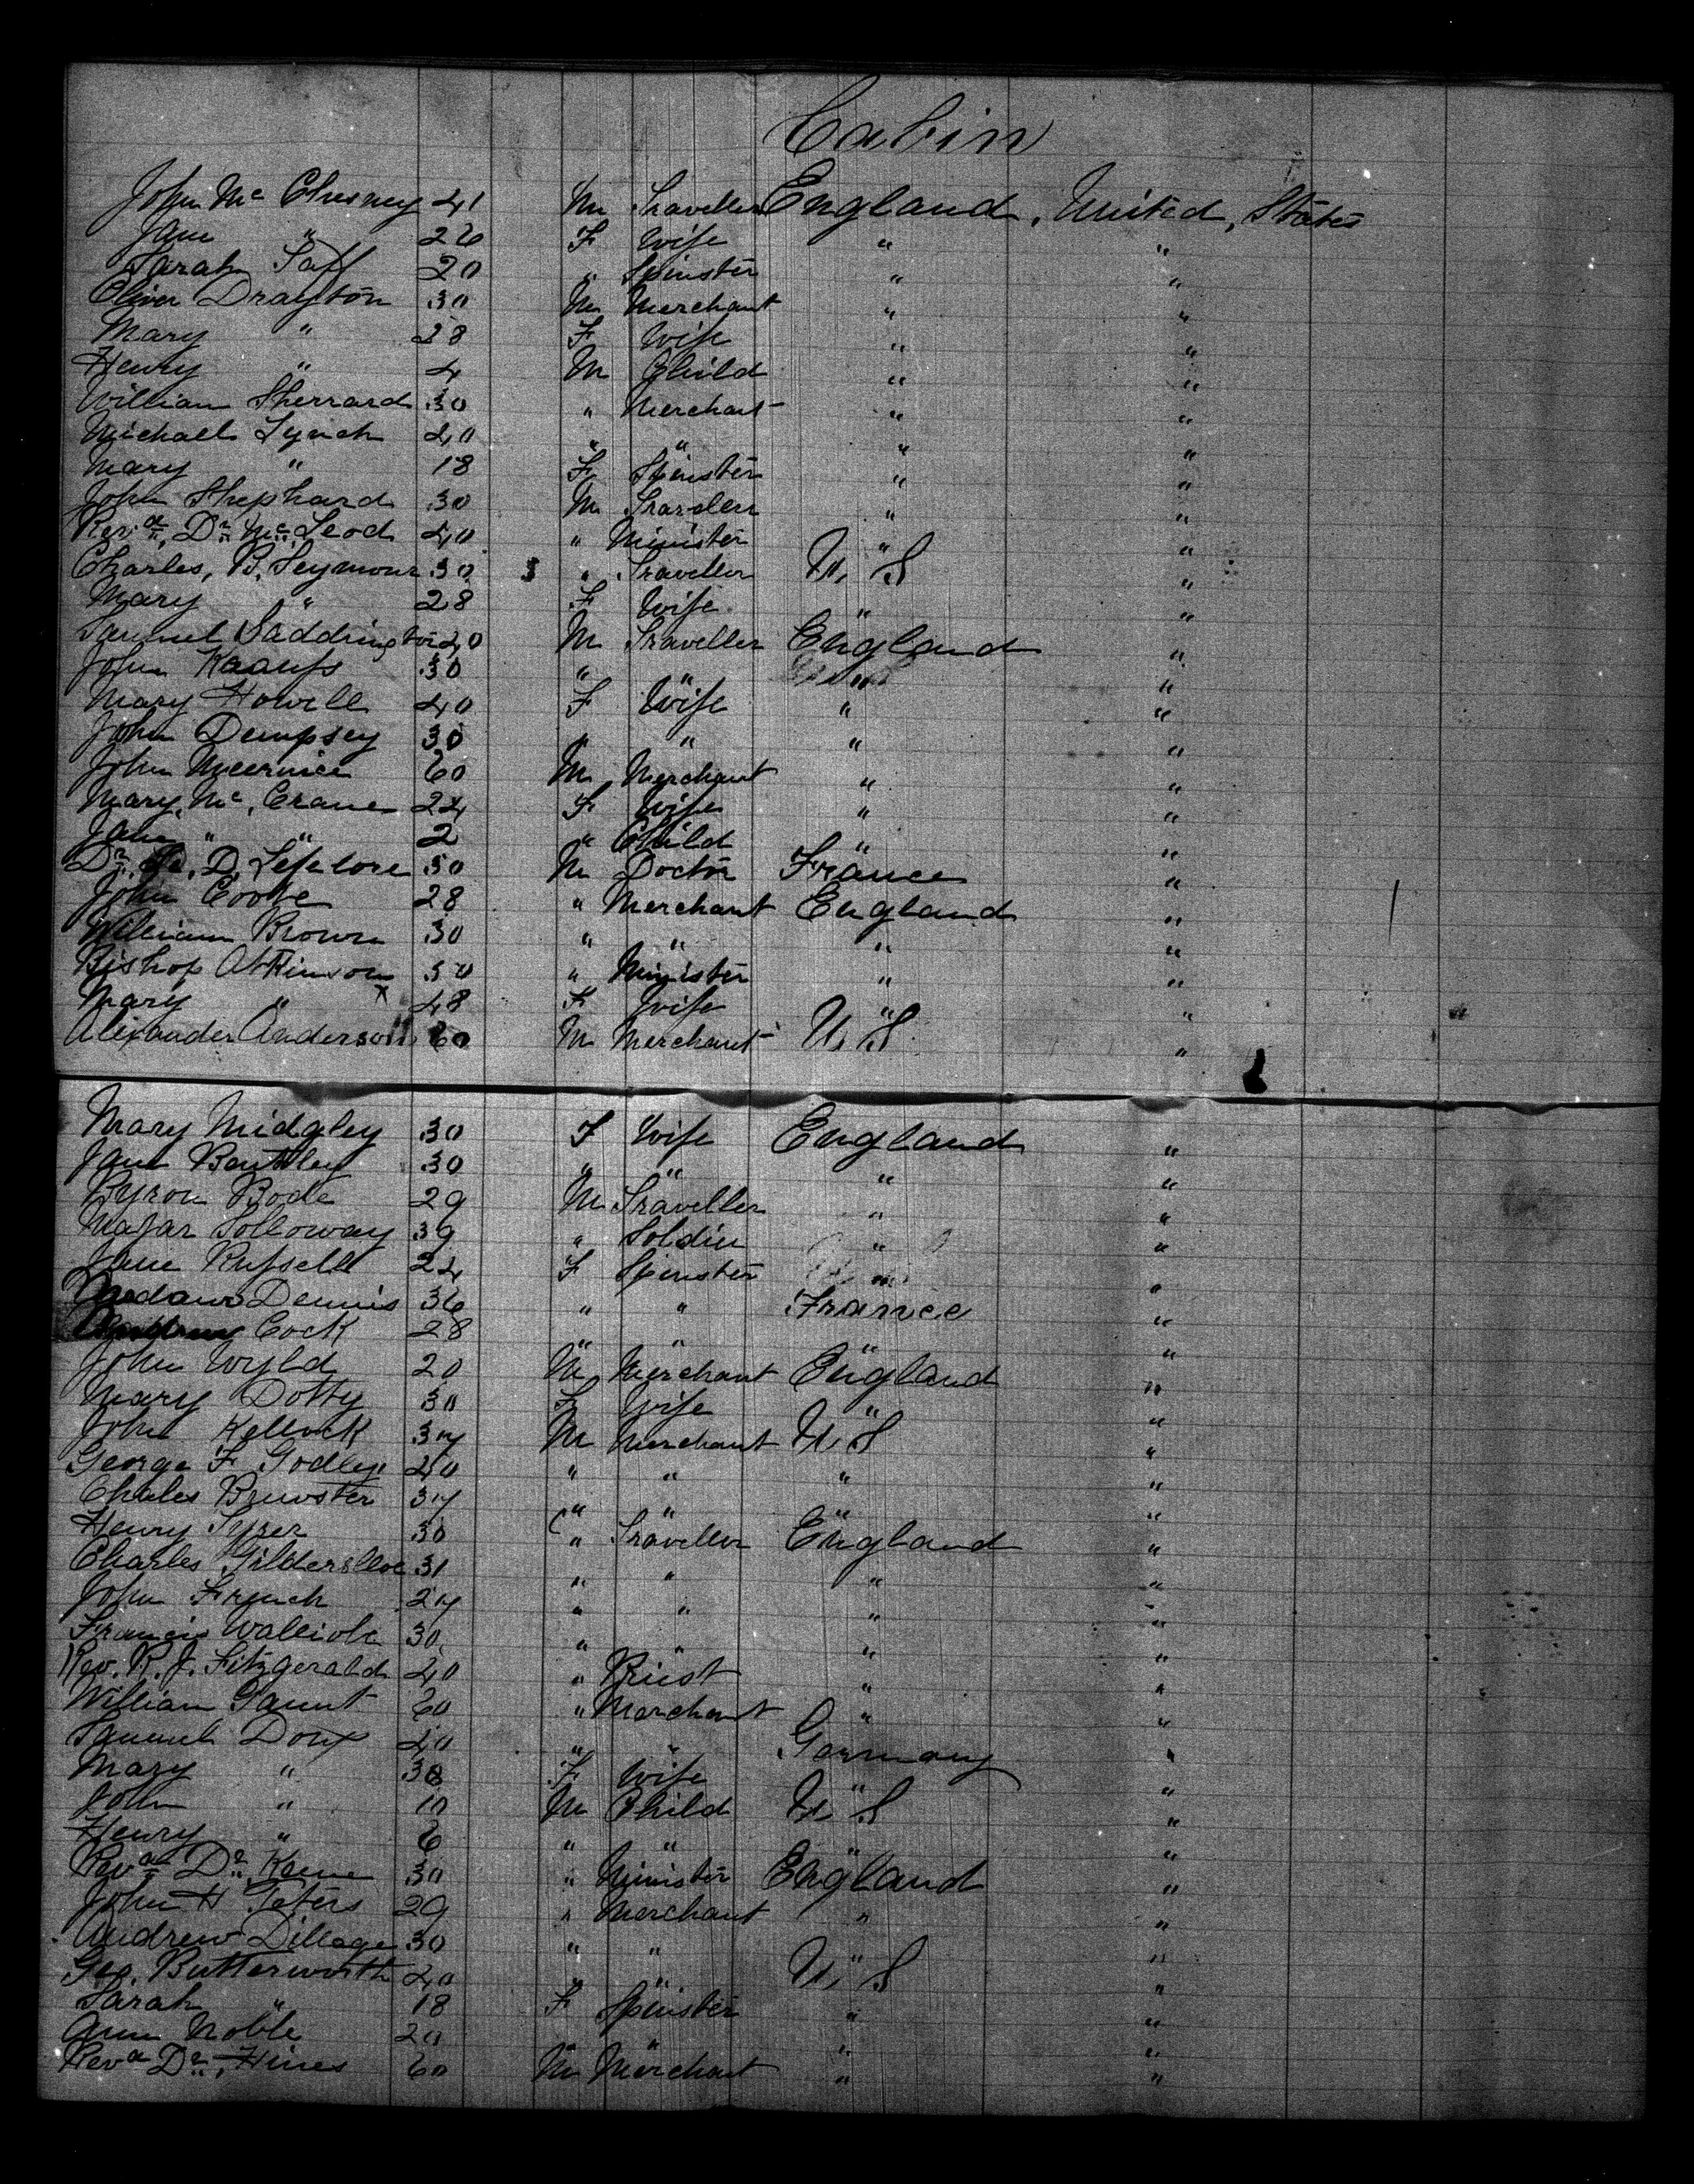 Cabin
John Mc Chesney 41 M Traveller England, United, States
Jane " 26 F Wife " "
Sarah Taff 20 " Spinster " "
Oliver Drayton 30 M Merchant " "
Mary " 28 F Wife " "
Henry " 4 M Child " "
William Sherrard 30 " Merchant " "
Michael Lynch 40 " " " "
Mary " 18 F Spinster " "
John Shephard 30 M " "
Revd. Dr. Mc Leod 40 " Minister " "
Charles, B, Seymour 30 " Traveller U, S "
Mary " 28 F Wife " "
Samuel Saddington 40 M Traveller England "
John 30 " " " "
Mary Howell 40 F Wife " "
John Dempsey 30 " " " "
John 60 M Merchant " "
Mary, Mc, Crane 24 F Wife " "
Jane " " 2 " Child " "
Dr. D, 50 M Doctor France "
John Cooke 28 " Merchant England "
William Brown 30 " " " "
Bishop Atkinson 50 " Minister " "
Mary x " 48 F Wife " "
Alexander Anderson 60 M Merchant U, S "
Mary Midgley 30 F Wife England "
Jane Bentley 30 " " " "
Byron Bode 29 M Traveller " "
Majar Solloway 39 " Soldier " "
Jane Russell 24 F Spinster " "
Madam Dennis 36 " " France "
Cock 28 " " " "
John Wyld 20 M Merchant England "
Mary Dotty 30 F Wife " "
John Kellock 34 M Merchant U, S "
George F Godley 40 " " " "
Charles Brewster 34 " " " "
Henry Tyrer 30 " Traveller England "
Charles 31 " " " "
John French 24 " " " "
Francis 30 " " " "
Rev. R. J. Fitzgerald 40 " Priest " "
William Gaunt 60 " Merchant " "
Samuel Doux 40 " " Germany "
Mary " 38 F Wife " "
John " 10 M Child U, S "
Henry " 6 " " " "
Revd Dr. Kame 30 " Minister England "
John H Peters 29 " Merchant " "
Andrew Dillage 30 " " " "
Geo. Butterworth 40 " " U, S "
Sarah " 18 F Spinster " "
Ann Noble 20 " " " "
Revd Dr. Hines 60 M Merchant " "